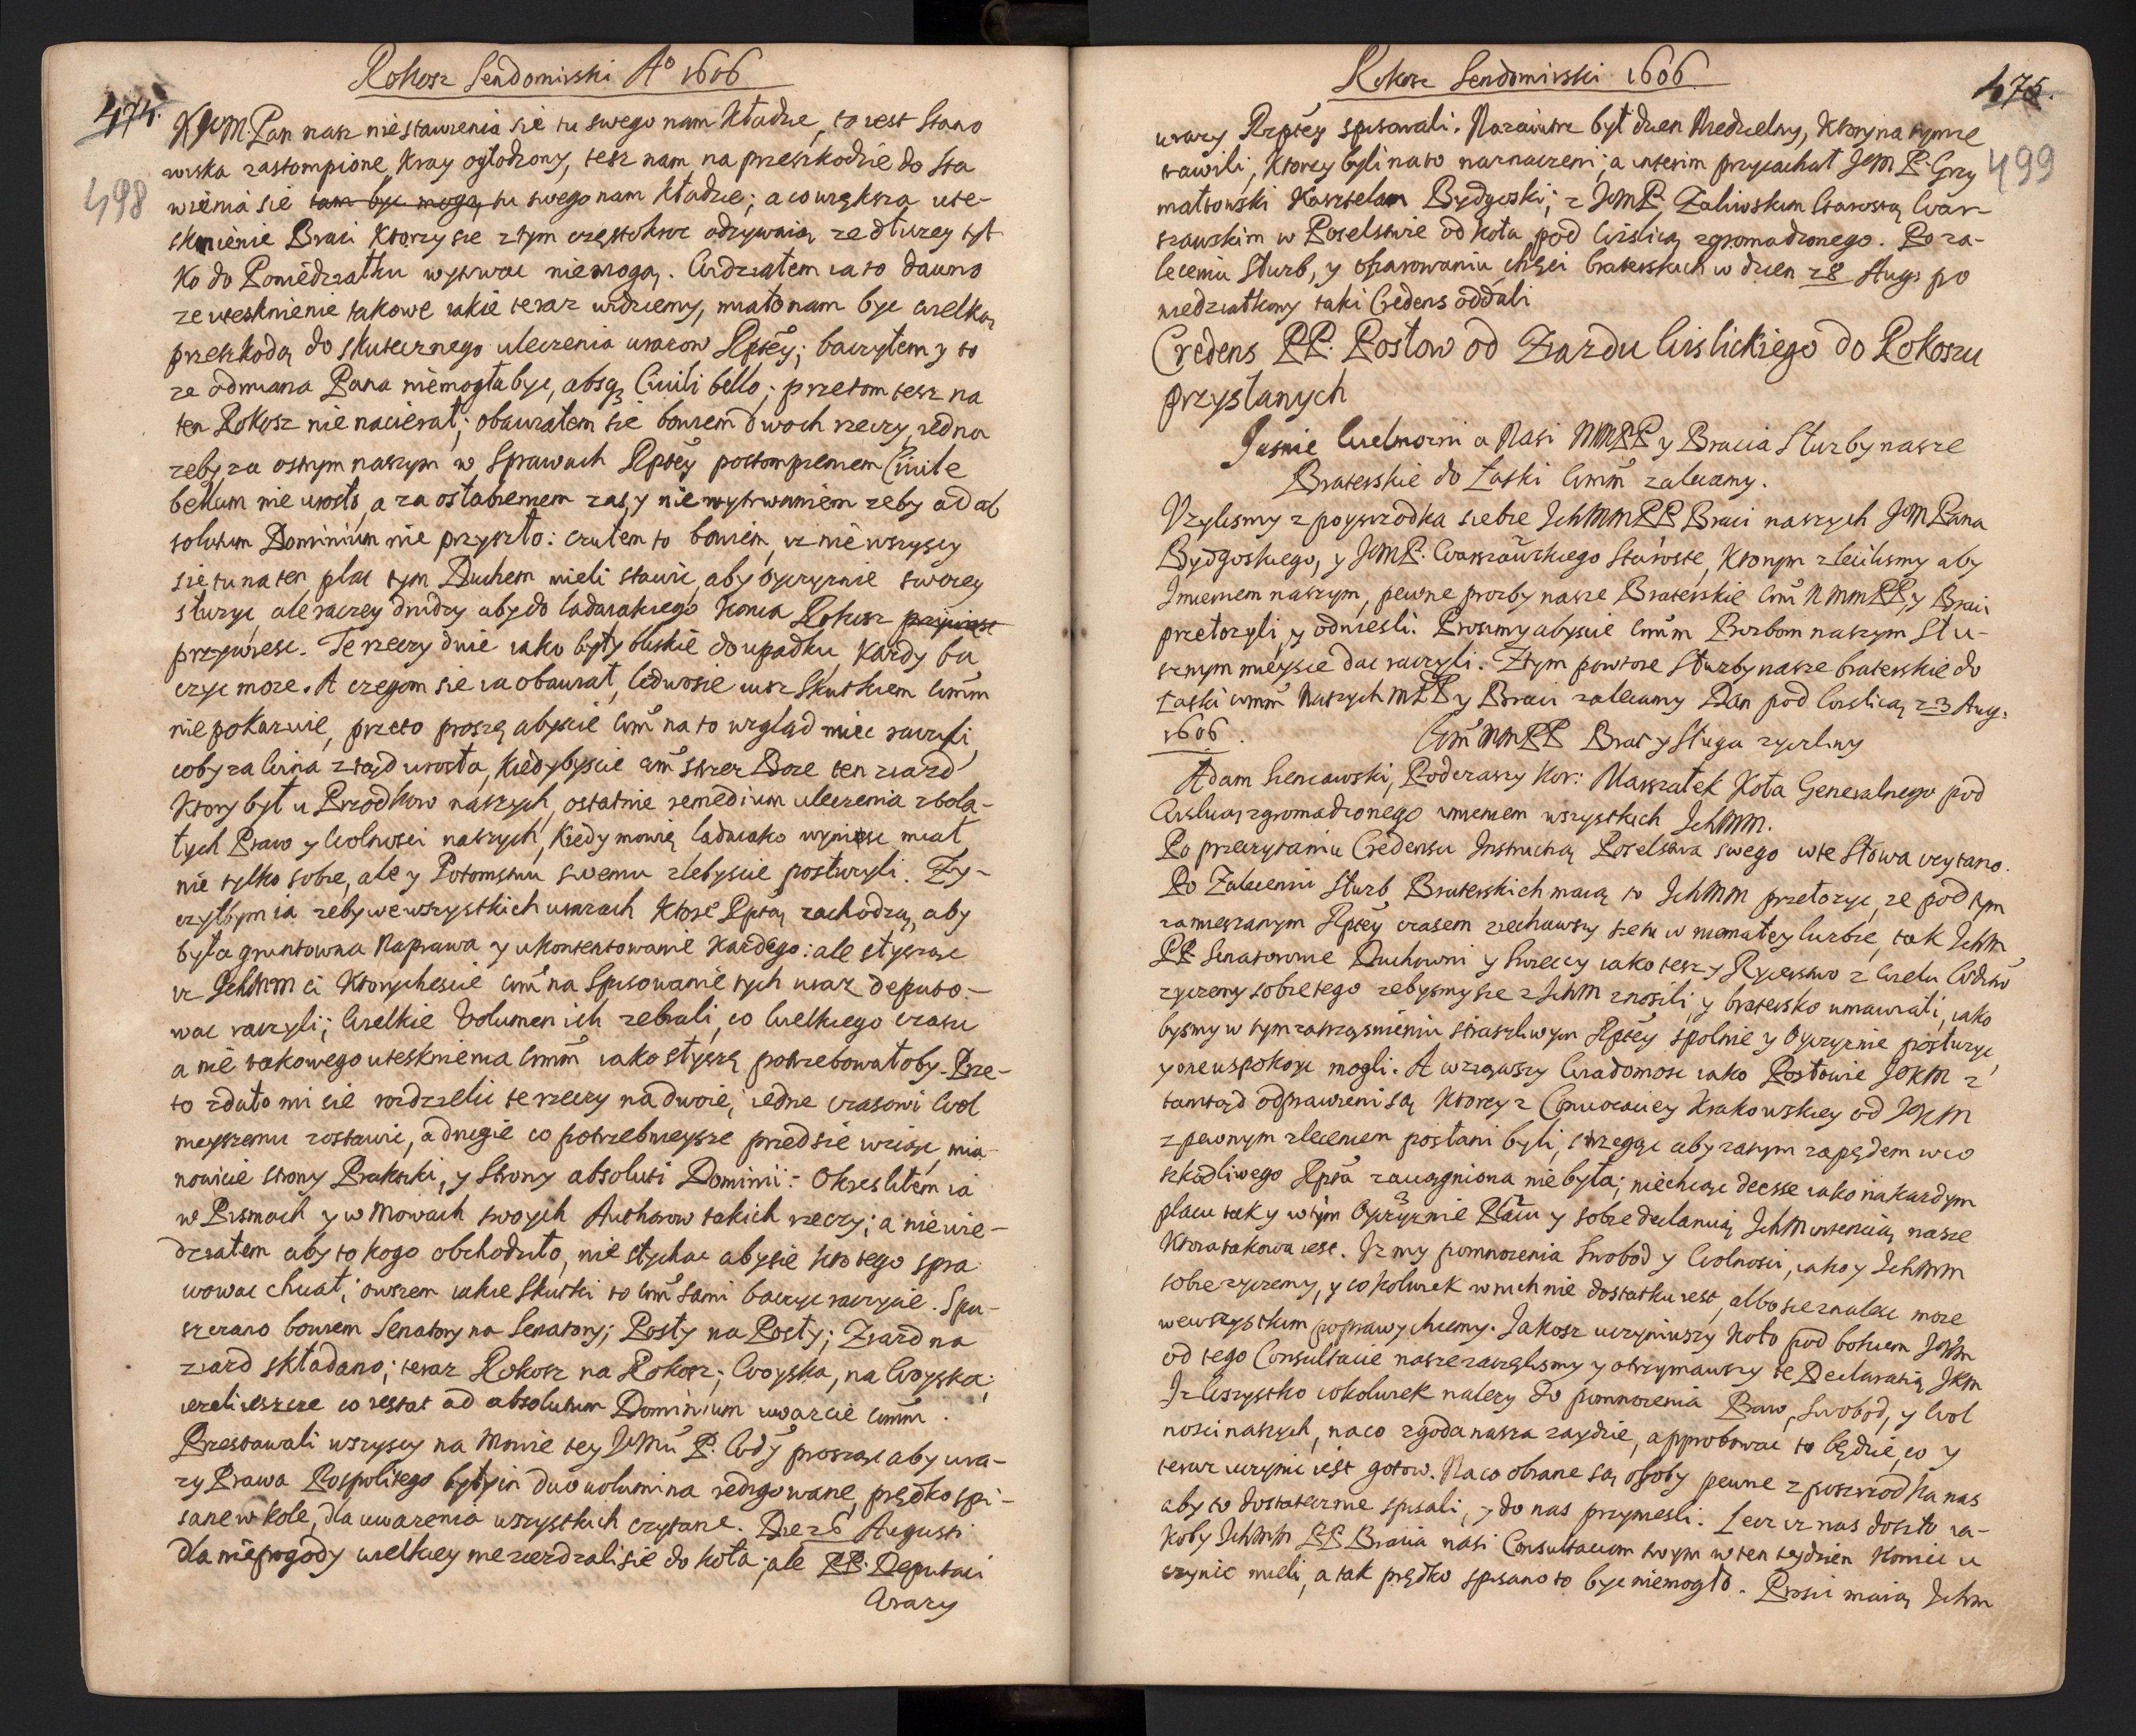 Rokosz Sendomirski Aº 1606
474.
498
KJeM. Pan nasz niestawienia się tu swego nam kładzie, to iest Stano
wiska zastompione, Kray ogłodzony, tesz nam na przeszkodzie do sta
wienia sie tam byc mogą, tu swego nam kładzie; a co większa ute-
sknienie Braci ktorzy sie z tym częstokroc odzywaią ze dłuzey tyl
ko do Poniedziałku wytrwac niemogą. Widziałem ia to dawno
ze utesknienie takowe iakie teraz widziemy, miało nam byc wielką
przeszkodą do skutecznego uleczenia urazow Rptey; baczyłem y to
ze odmiana Pana niemogła byc, absq3 Civili bello; przetom tesz na
ten Rokosz nie nacierał; obawiałem sie bowiem dwoch rzeczy, iedna
zeby za ostrym naszym w Sprawach Rptey postompieniem Civile
bellum nie urosło, a za osłabieniem zas, y nie wytrwaniem zeby ad ab
solutum Dominium nie przyszło: czułem to bowiem, iz nie wszyscy
sie tu na ten plac tym Duchem mieli stawic, aby oyczyznie swoiey
słuzyc, ale raczey drudzy aby do ladaiakiego konca Rokosz przywiesc
przywiesc. Te rzeczy dwie iako były bliskie do upadku, kazdy ba
czyc moze. A czegom sie ia obawiał, ledwosie iusz skutkiem Wmm
nie pokazuie, przeto proszę abyscie Wm na to wzgląd miec raczyli,
coby za Wina ztąd urosła, kiedybyscie Wm strzez Boze ten ziazd
ktory był u Przodkow naszych, ostatnie remedium uleczenia zbola-
łych Praw y Wolnosci naszych, kiedy mowię ladaiako wyniesc miał
nie tylko sobie, ale y Potomstwu swemu zlebyscie posłuzyli. Zy-
czyłbym ia zeby we wszystkich urazach ktore Rptą zachodzą, aby
była gruntowna Naprawa y ukontentowanie kazdego: ale słysząc
iz Ichmm ci ktorychescie Wm na Spisowanie tych uraz deputo-
wac raczyli; Wielkie Volumen ich zebrali, co Wielkiego czasu
a nie takowego utesknienia Wmm iako słyszę potrzebowałoby. Prze-
to zdało mi sie rozdzielic te rzeczy na dwoie, iedne czasowi Wol
nieyszemu zostawic, a drugie co potrzebnieysze przed sie wziąc, mia-
nowicie strony Praktyki, y Strony absoluti Dominii: Okresliłem ia
w Pismach y w Mowach swoych Authorow takich rzeczy; a nie wie-
działem aby to kogo obchodziło, nie słychac aby sie kto tego spra
wowac chciał; owszem iakie skutki to Wm sami baczyc raczycie. Spu-
szczano bowiem Senatory na Senatory; Posły na Posły; Ziazd na
ziazd składano; teraz Rokosz na Rokosz; Woyska, na Woyska;
iezeli ieszcze co restat ad absolutum Dominium uwazcie Wmm.
Przestawali wszyscy na Mowie tey JeMci P. Wdy prosząc aby ura-
zy Prawa Pospolitego były in duo volumina redigowane, prędko spi-
sane w kole, dla uwazenia wszystkich czytane. Die 26 Augusti
dla niepogody wielkiey nie ziezdzali sie do koła; ale PP. Deputaci
Urazy
Rokosz Sendomirski 1606
475.
499
urazy Rzptey spisowali. Nazaiutrz był dzien Niedzielny, ktory na tymze
trawili, ktorzy byli na to naznaczeni; a interim przyiachał JeM P. Grzy
małtowski Kasztelan Bydgoski; z JeMP. Zaliwskim Starostą War-
szawskim w Poselstwie od koła pod Wislicą zgromadzonego. Po za-
leceniu Słuzb, y ofiarowaniu chęci braterskich w dzien 28 Aug: po
niedziałkowy taki Credens oddali
Credens PP. Posłow od Ziazdu Wislickiego do Rokoszu
przysłanych
Jasnie Wielmozni a Nasi MMPP y Bracia Słuzby nasze
Braterskie do Łaski Wmm zalecamy.
Uzylismy z posrzodka siebie IchMMPP Braci naszych JeM Pana
Bydgoskiego, y JeMP. Warszawskiego Starostę, ktorym zlecilismy aby
Imieniem naszym, pewne prozby nasze Braterskie Wm NMMPP, y Braci
przełozyli, y odniesli. Prosimy abyscie Wmm Prozbom naszym Słu-
sznym mieysce dac raczyli. Ztym powtore Słuzby nasze braterskie do
Łaski Wmm Naszych MPP y Braci zalecamy Dan pod Wislicą 23 Aug:
1606. Wm MMPP Brat y Sługa zyczliwy
Adam Sieniawski, Podczaszy Kor: Marszałek Koła Generalnego pod
Wislicą zgromadzonego imieniem wszystkich Ichmm.
Po przeczytaniu Credensu Instructią Poselstwa swego w te słowa czytano.
Po Zaleceniu Słuzb Braterskich maią to IchMM przełozyc, ze pod tym
zamieszanym Rptey czasem ziechawszy sie tu w niemałey liczbie, tak Ichm
PP. Senatorowie Duchowni y Swieccy iako tesz y Rycerstwo z Wielu Wdztw
zyczemy sobie tego zebysmy sie z Ichm znosili, y bratersko umawiali, iako
bysmy w tym zatrząsnieniu straszliwym Rptey spolnie y Oyczyznie posłuzyc,
y one uspokoic mogli. A wziąwszy Wiadomosc iako Posłowie JoKM z
tamtąd odprawieni są, ktorzy z Convocatiey Krakowskiey od JoKM
z pewnym zleceniem posłani byli, strzegąc aby zatym zapędem w co
szkodliwego Rpta zaciągniona nie była; niechcąc deesse iako na kazdym
placu tak y w tym Oyczyznie Panu y sobie declaruią Ichm intentią nasze
ktora takowa iest. Iz my pomnozenia Swobod y Wolnosci, iako y Ichmm
sobie zyczemy, y cokolwiek w nich nie dostatku iest, albo sie znalesc moze
we wszystkim poprawy chcemy. Jakosz uczyniwszy koło pod bokiem JoKm
od tego Consultacie nasze zaczęlismy y otrzymawszy te Declaratią JKm
Iz Wszystko cokolwiek nalezy do pomnozenia Praw, Swobod, y Wol
nosci naszych, na co zgoda nasza zaydzie, approbowac to będzie, co y
teraz uczynic iest gotow. Na co obrane są osoby pewne z posrzodka nas
aby to dostatecznie spisali, y do nas przyniesli. Lecz iz nas doszło ia-
koby Ichmm PP Bracia nasi Consultaciom swym w ten tydzien koniec u
czynic mieli, a tak prędko spisano to byc niemogło. Prosic maią Ichm